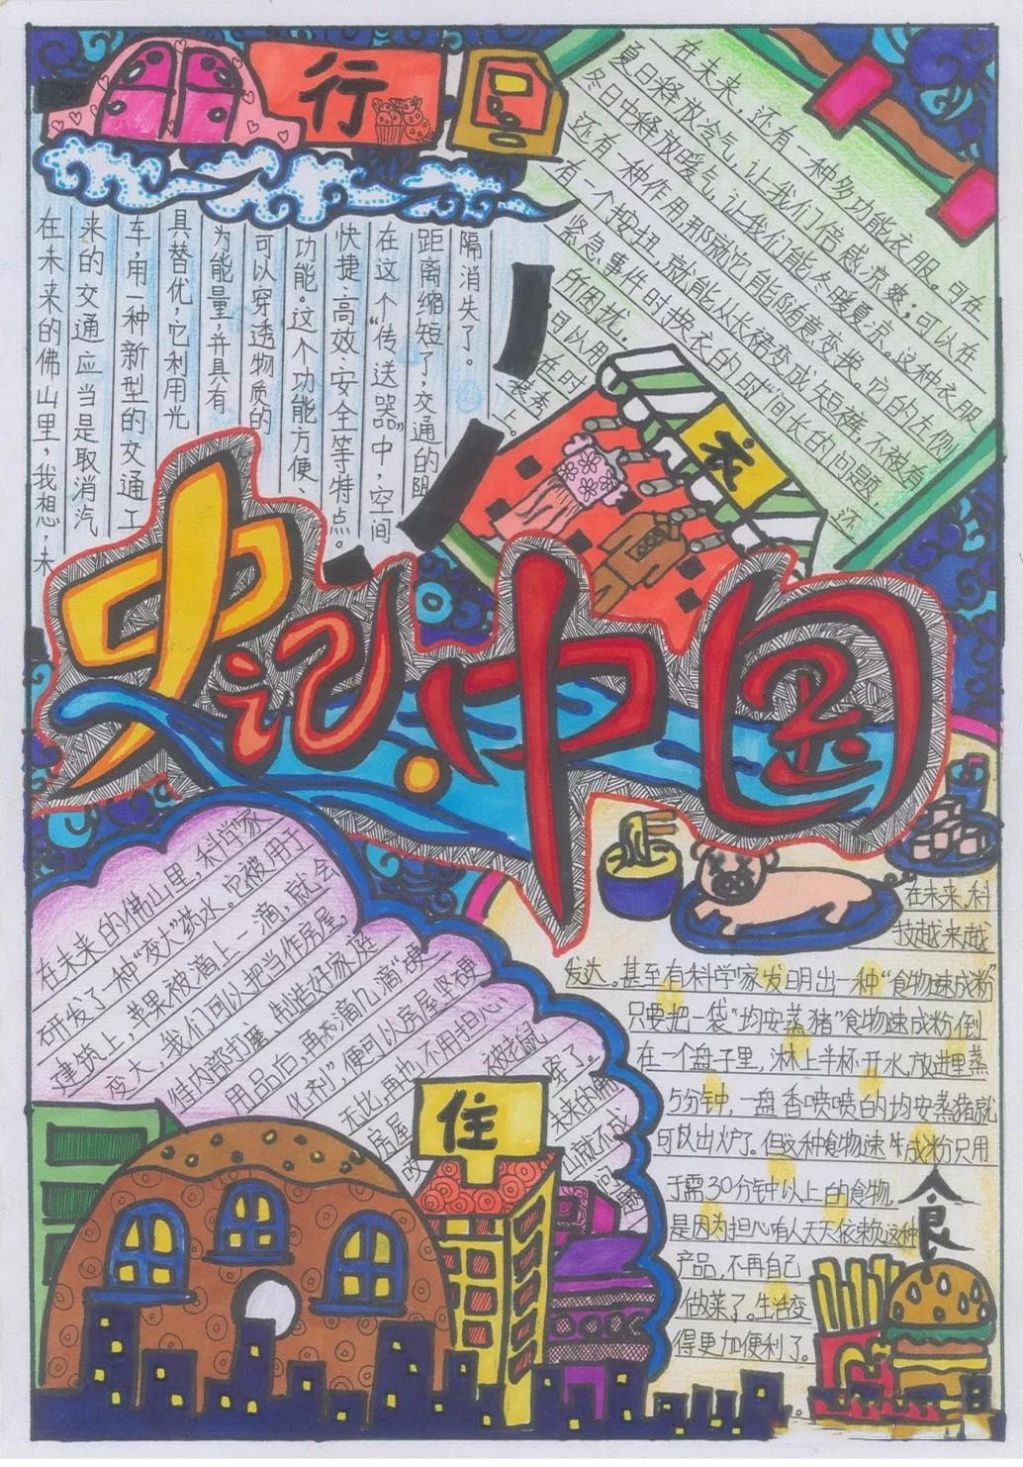 行
在未来的佛山里，我想，未
来的交通应当是取消汽
车，用一种新型的交通工
具替优，它利用光
为能量，并具有
可以穿透物质的
功能。这个功能方便、
快捷、高效、安全等特点。
在这个“传送器”中，空间
距离缩短了，交通的阻
隔消失了。
在未来，还有一种多功能衣服。可在
夏日释放冷气，让我们倍感凉爽；可以在
冬日中释放暖气，让我们能冬暖夏凉。这种衣服
还有一种作用，那就它能随意变换。它的左侧
有一个按扭，就能从长裙变成短裤，不被有
紧急事件时换衣的时间长的问题，还
所困扰。
可以用
在时
装秀
上。
衣
史记·中国
在未来的佛山里，科学家
研发了一种“变大”药水。它被用于
建筑上，苹果被滴上一滴，就会
变大，我们可以把当作房屋，
往内部打磨、制造好家庭
用品后，再滴几滴“硬
化剂”，便可以房屋坚硬
无比，再也不用担心
房屋 被老鼠
穿了。
未来的佛
山就不成
住
在未来，科
技越来越
发达。甚至有科学家发明出一种“食物速成粉”
只要把一袋“均安蒸猪”食物速成粉倒
在一个盘子里，淋上半杯开水，放进里蒸
5分钟，一盘香喷喷的均安蒸猪就
可以出炉了。但这种食物速成粉只用
于需30分钟以上的食物，
是因为担心有人天天依赖这种
产品，不再自己
做菜了。生活变
得更加便利了。
食